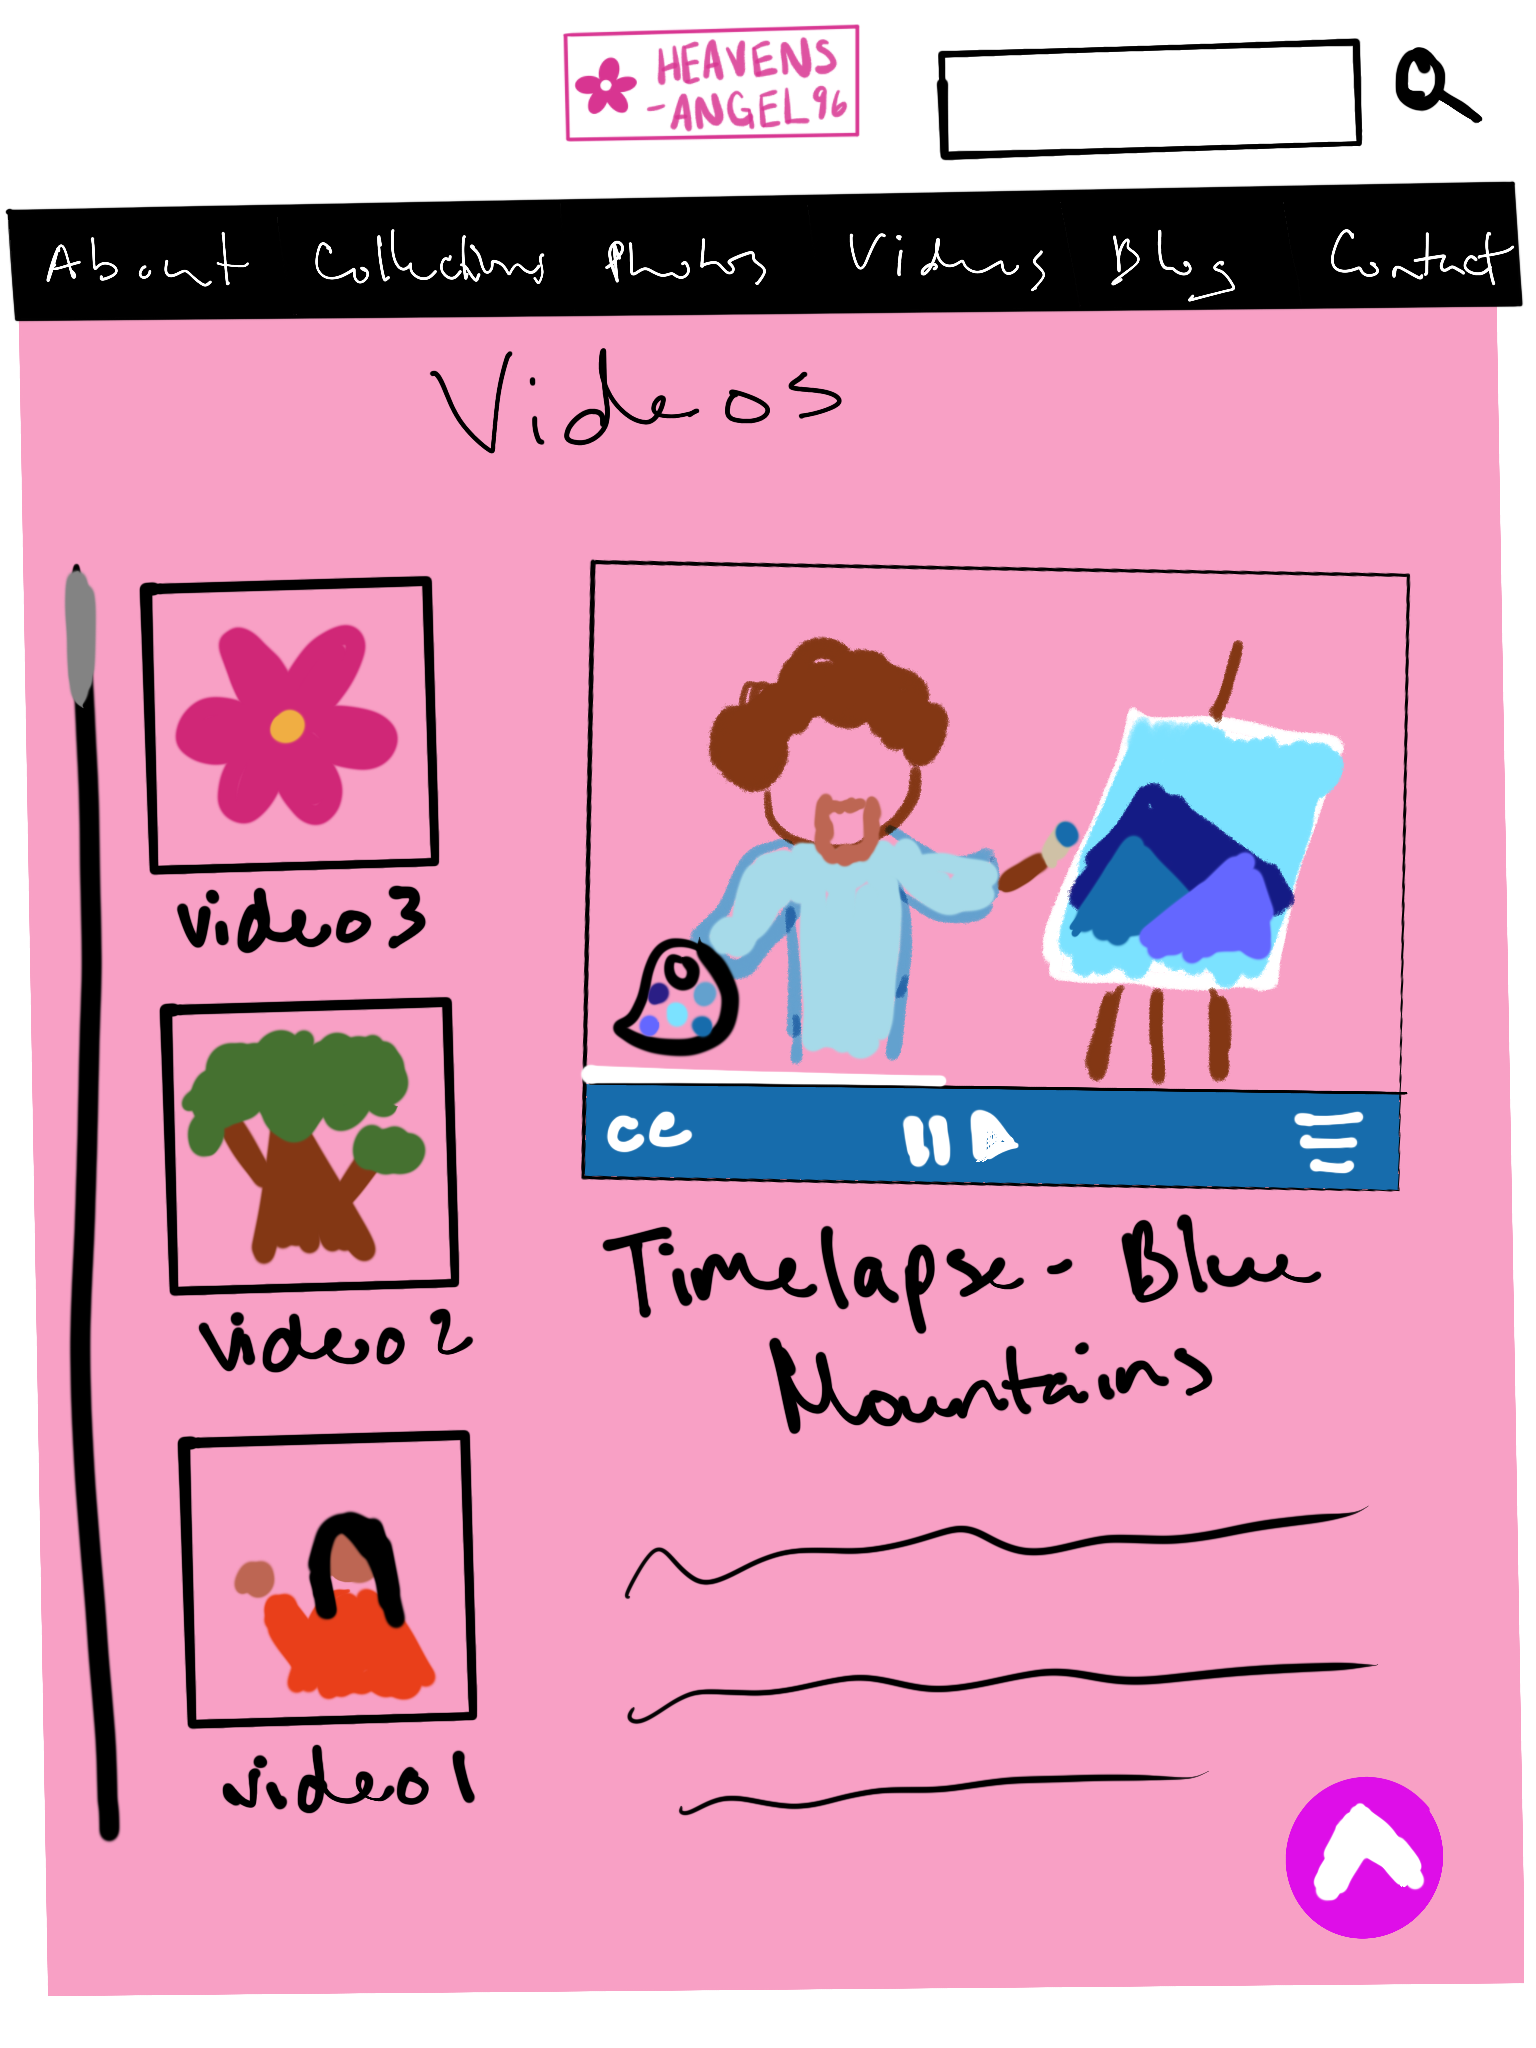 HEAVENS
-ANGEL96
About Collections Photos Videos Blog Contact
Videos
video 3
video 2
video 1
CC
Timelapse - Blue
Mountains